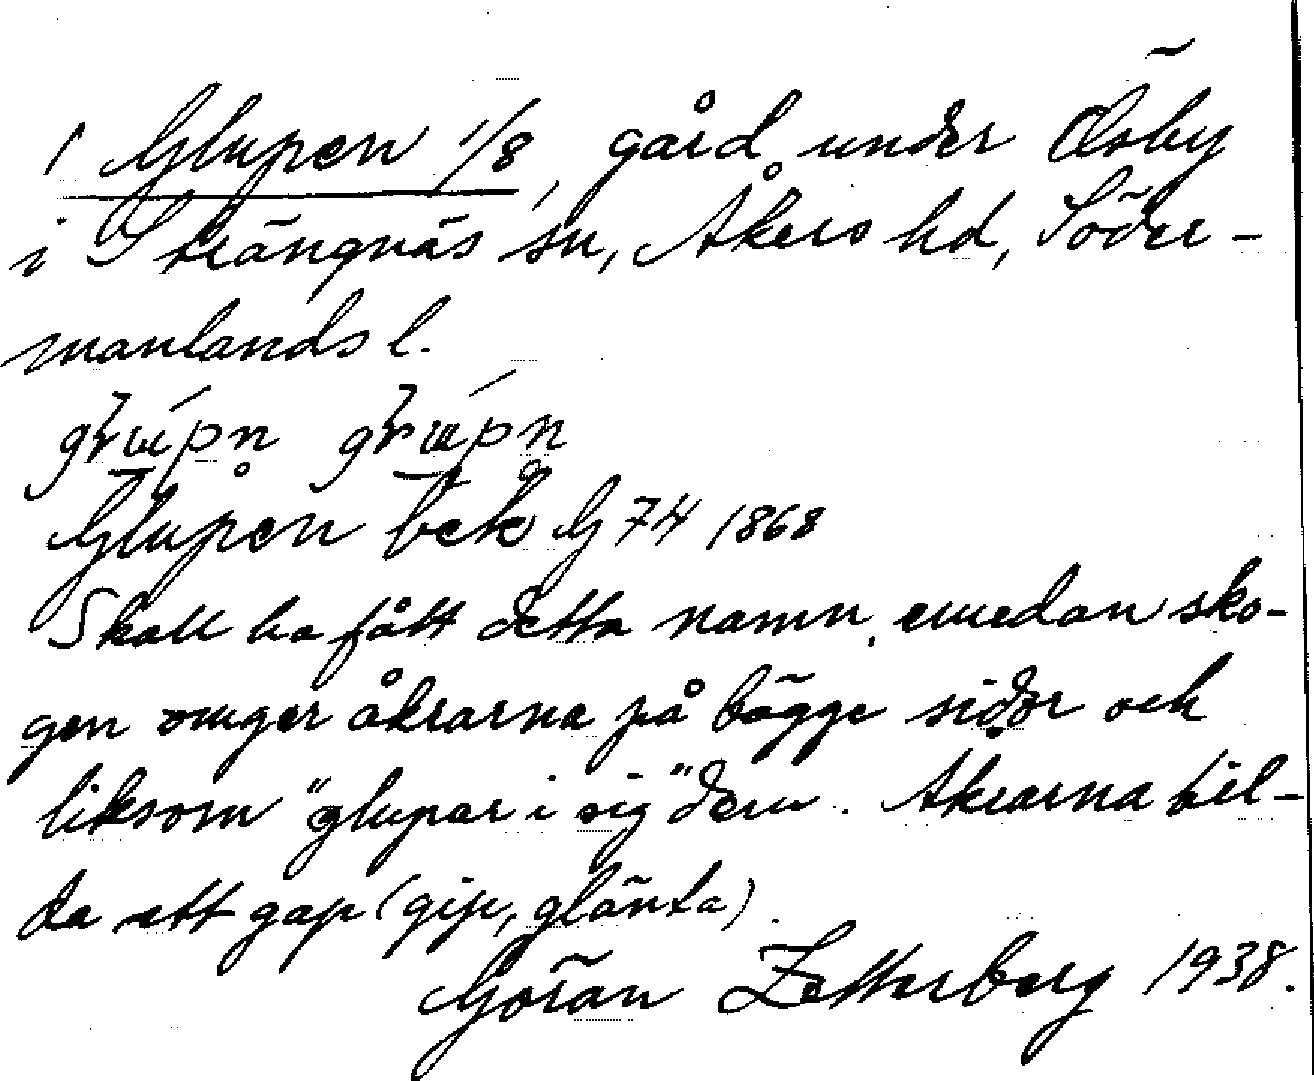 1 Glupen 1/8, gård under Ösby
i Strängnäs sn, Åkers hd, Söder-
manlands l.
Glupen bek G 74 1868
Skall ha fått detta namn, emedan sko-
gen omger åkrarna på bägge sidor och
liksom "glupar i sig" dem. Åkrarna bil-
da ett gap (gip, glänta).
Göran Zetterberg 1938.